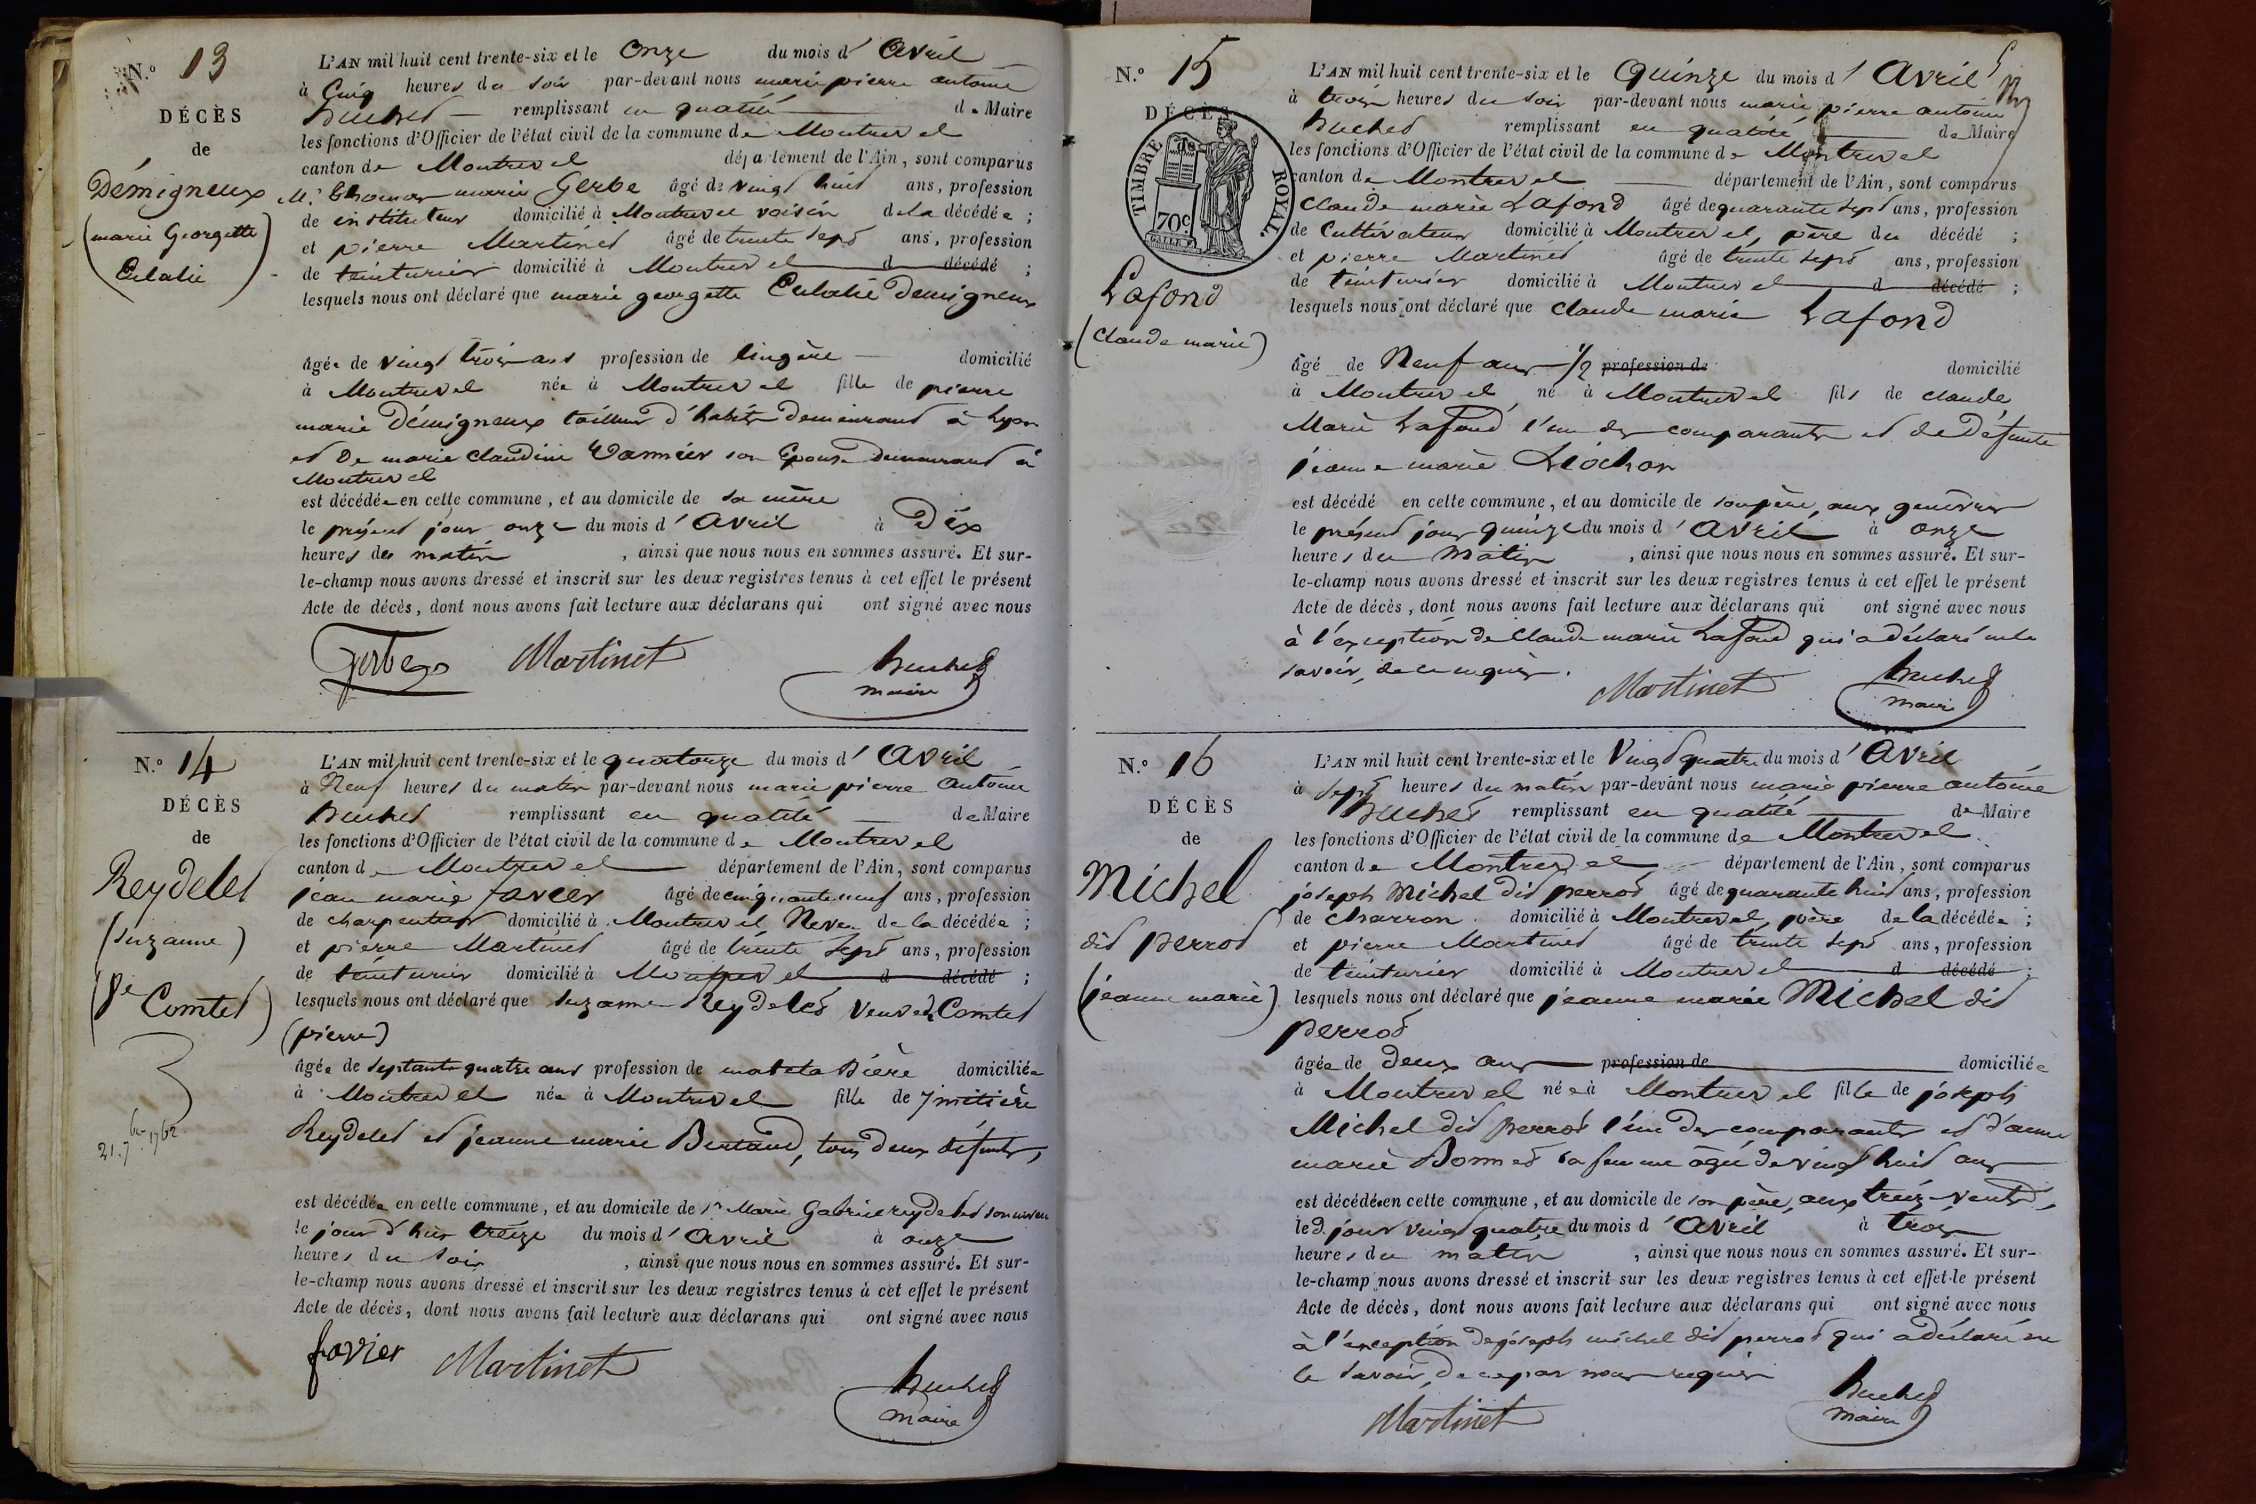 N.º 13
DÉCÈS
de
Démigneux
(marie Georgette
Eulalie)
L'AN mil huit cent trente-six et le Onze du mois d' Avril
à Cinq heures du soir par-devant nous marie pierre antoine
Buchet remplissant en qualité de Maire
les fonctions d'Officier de l'état civil de la commune de Montrevel
canton de Montrevel département de l'Ain, sont comparus
Mr. Thomas marie Gerbe âgé de vingt huit ans, profession
de instituteur domicilié à Montrevel voisin de la décédée ;
et pierre Martinet âgé de trente sept ans, profession
de teinturier domicilié à Montrevel d décédé ;
lesquels nous ont déclaré que marie georgette Eulalie Demigneux
âgée de vingt trois ans profession de lingère domicilié
à Montrevel née à Montrevel fille de pierre
marie Démigneux tailleur d'habits demeurant à Lyon
et De marie Claudine Vannier son Epouse Demeurant à
Montrevel
est décédée en cette commune, et au domicile de sa mère
le présent jour onze du mois d' Avril à Dix
heures du matin , ainsi que nous nous en sommes assuré. Et sur-
le-champ nous avons dressé et inscrit sur les deux registres tenus à cet effet le présent
Acte de décès, dont nous avons fait lecture aux déclarans qui ont signé avec nous
Gerbe Martinet Buchet
maire
N.º 14
DÉCÈS
de
Reydelet
(suzanne)
(Ve Comtet)
21. 7bre 1762
L'AN mil huit cent trente-six et le quatorze du mois d' Avril
à Neuf heures du matin par-devant nous marie pierre Antoine
Buchet remplissant en qualité de Maire
les fonctions d'Officier de l'état civil de la commune de Montrevel
canton de Montrevel département de l'Ain, sont comparus
jean marie favier âgé de cinquante neuf ans, profession
de charpentier domicilié à Montrevel Neveu de la décédée ;
et pierre Martinet âgé de trente sept ans, profession
de teinturier domicilié à Montrevel d décédé ;
lesquels nous ont déclaré que suzanne Reydelet veuve de Comtet
(pierre)
âgée de septante quatre ans profession de domiciliée
à Montrevel née à Montrevel fille de
Reydelet et jeanne marie Bertaud, tous deux défunts,
est décédée en cette commune, et au domicile de Sr Marie Gabriel reydelet son neveu
le jour d'hier treize du mois d' avril à onze
heures du soir , ainsi que nous nous en sommes assuré. Et sur-
le-champ nous avons dressé et inscrit sur les deux registres tenus à cet effet le présent
Acte de décès, dont nous avons fait lecture aux déclarans qui ont signé avec nous
favier Martinet Buchet
maire
N.º 15
DÉCÈS
de
TIMBRE ROYAL.
70c
Lafond
(Claude marie)
L'AN mil huit cent trente-six et le Quinze du mois d' Avril
à trois heures du soir par-devant nous marie pierre antoine
Buchet remplissant en qualité de Maire
les fonctions d'Officier de l'état civil de la commune de Montrevel
canton de Montrevel département de l'Ain, sont comparus
Claude marie Lafond âgé de quarante sept ans, profession
de Cultivateur domicilié à Montrevel, père du décédé ;
et pierre Martinet âgé de trente sept ans, profession
de teinturier domicilié à Montrevel d décédé ;
lesquels nous ont déclaré que Claude marie Lafond
âgé de Neuf ans 1/2 profession de domicilié
à Montrevel né à Montrevel fils de claude
Marie Lafond l'un des comparants et de Défunte
jeanne marie Liochon
est décédé en cette commune, et au domicile de son père, aux
le présent jour quinze du mois d' Avril à onze
heures du Matin , ainsi que nous nous en sommes assuré. Et sur-
le-champ nous avons dressé et inscrit sur les deux registres tenus à cet effet le présent
Acte de décès, dont nous avons fait lecture aux déclarans qui ont signé avec nous
à l'exception de Claude marie Lafond qui a déclaré ne le
savoir, de ce enquis.
Martinet Buchet
maire
N.º 16
DÉCÈS
de
Michel
dit perrot
(jeanne marie)
L'AN mil huit cent trente-six et le Vingt quatre du mois d' Avril
à sept heures du matin par-devant nous marie pierre antoine
Buchet remplissant en qualité de Maire
les fonctions d'Officier de l'état civil de la commune de Montrevel
canton de Montrevel département de l'Ain, sont comparus
joseph Michel dit perrot âgé de quarante huit ans, profession
de charron domicilié à Montrevel, père de la décédée ;
et pierre Martinet âgé de trente sept ans, profession
de teinturier domicilié à Montrevel d décédé ;
lesquels nous ont déclaré que jeanne marie Michel dit
perrot
âgée de deux ans profession de domiciliée
à Montrevel née à Montrevel fille de joseph
Michel dit perrot l'un des comparants et d'anne
marie Bonnet sa femme âgée de vingt huit ans
est décédée en cette commune, et au domicile de son père, aux
led. jour vingt quatre du mois d' Avril à trois
heures du matin , ainsi que nous nous en sommes assuré. Et sur-
le-champ nous avons dressé et inscrit sur les deux registres tenus à cet effet le présent
Acte de décès, dont nous avons fait lecture aux déclarans qui ont signé avec nous
à l'exception de joseph michel dit perrot qui a déclaré ne
le savoir, de ce par nous requis
Martinet Buchet
maire